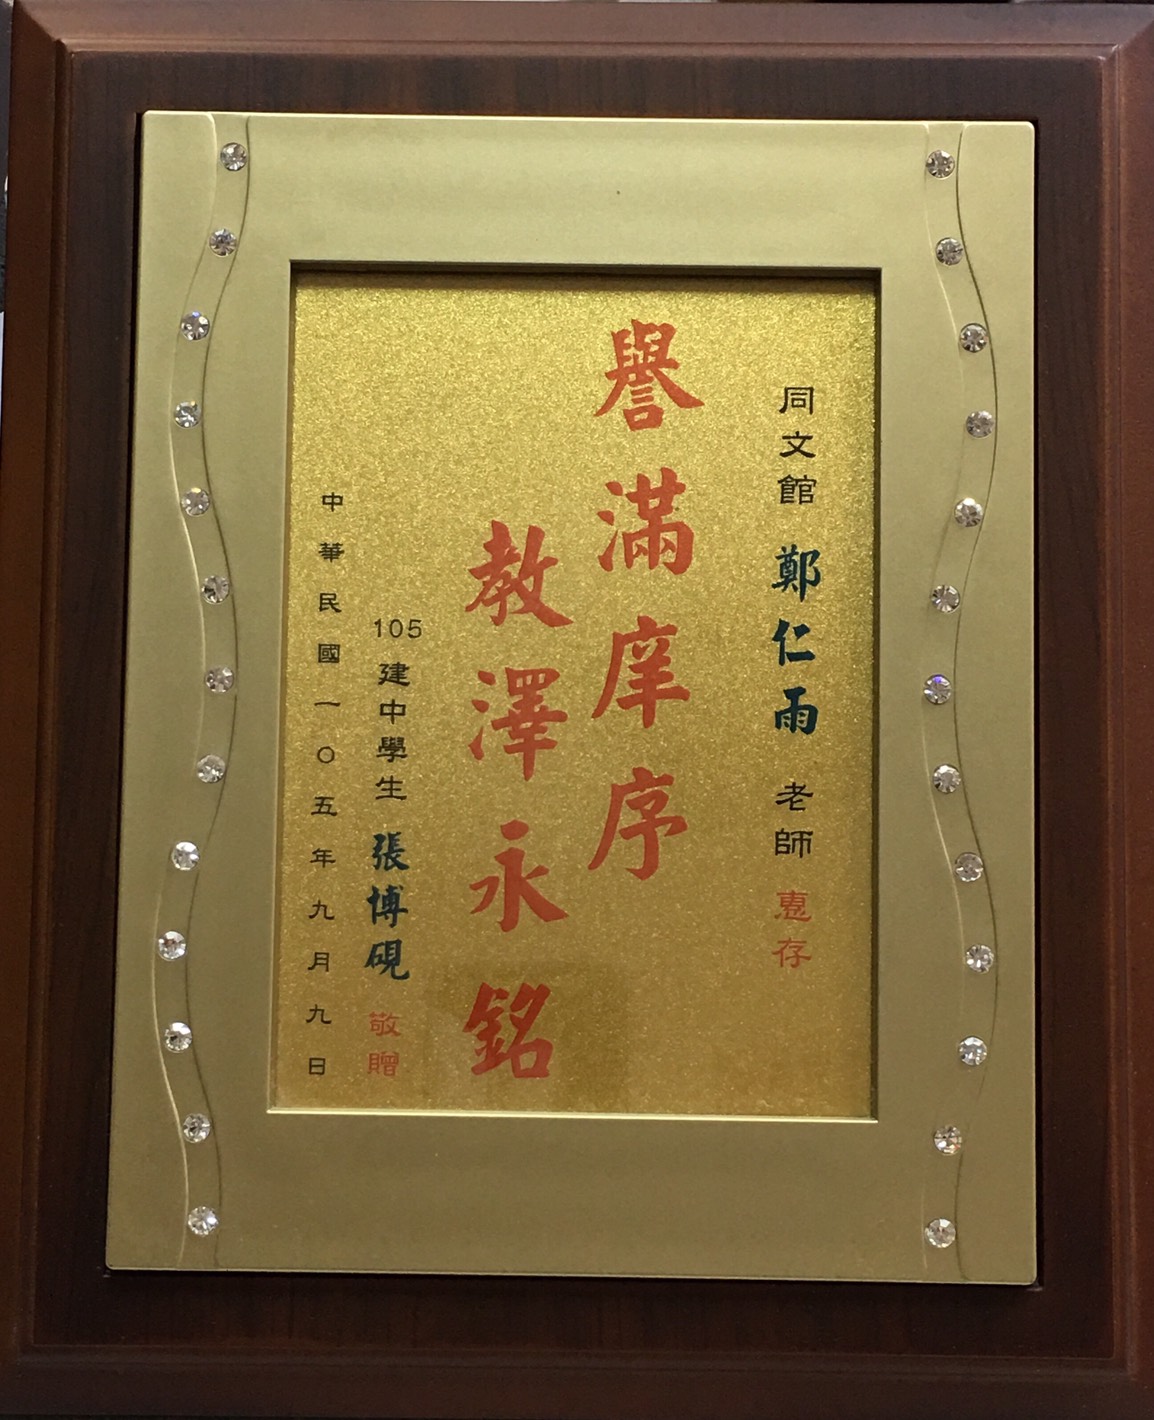 同文館 鄭仁雨 老師 惠存
譽滿庠序
教澤永銘
105 建中學生 張博硯 敬贈
中華民國一〇五年九月九日